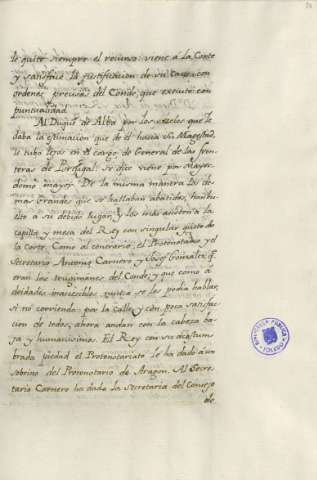 le quite siempre el recurso: viene á la Corte
y satisface la justificacion de su causa con
ordenes precisas del Conde, que executó con
puntualidad
Al Duque de Alba por los zelos que le
daba la estimacion que de él hacia su Magestad,
le tubo lejos en el cargo de General de las fron-
teras de Portugal. Se dice viene por Mayor-
domo mayor. De la misma manera los de-
mas Grandes que se hallaban abatidos, han bu-
elto a su debido lugar, y los mas asisten a la
capilla y mesa del Rey con singular gusto de
la Corte. Como al contrario, el Protonotario, y el
Secretario Antonio Carnero y Josef Gonzalez, q.e
eran los trugimanes del Conde, y que como á
deidades inaccesibles nunca se les podia hablar,
si no corriendo por la calle y con poca satisfac-
cion de todos, ahora andan con la cabeza ba-
ja y humanisimos. El Rey con su acostum-
brada piedad el Protonotariato le ha dado á un
sobrino del Protonotario de Aragon. Al Secre-
tario Carnero ha dado la Secretaria del Consejo
de
BIBLIOTECA PUBLICA
TOLEDO